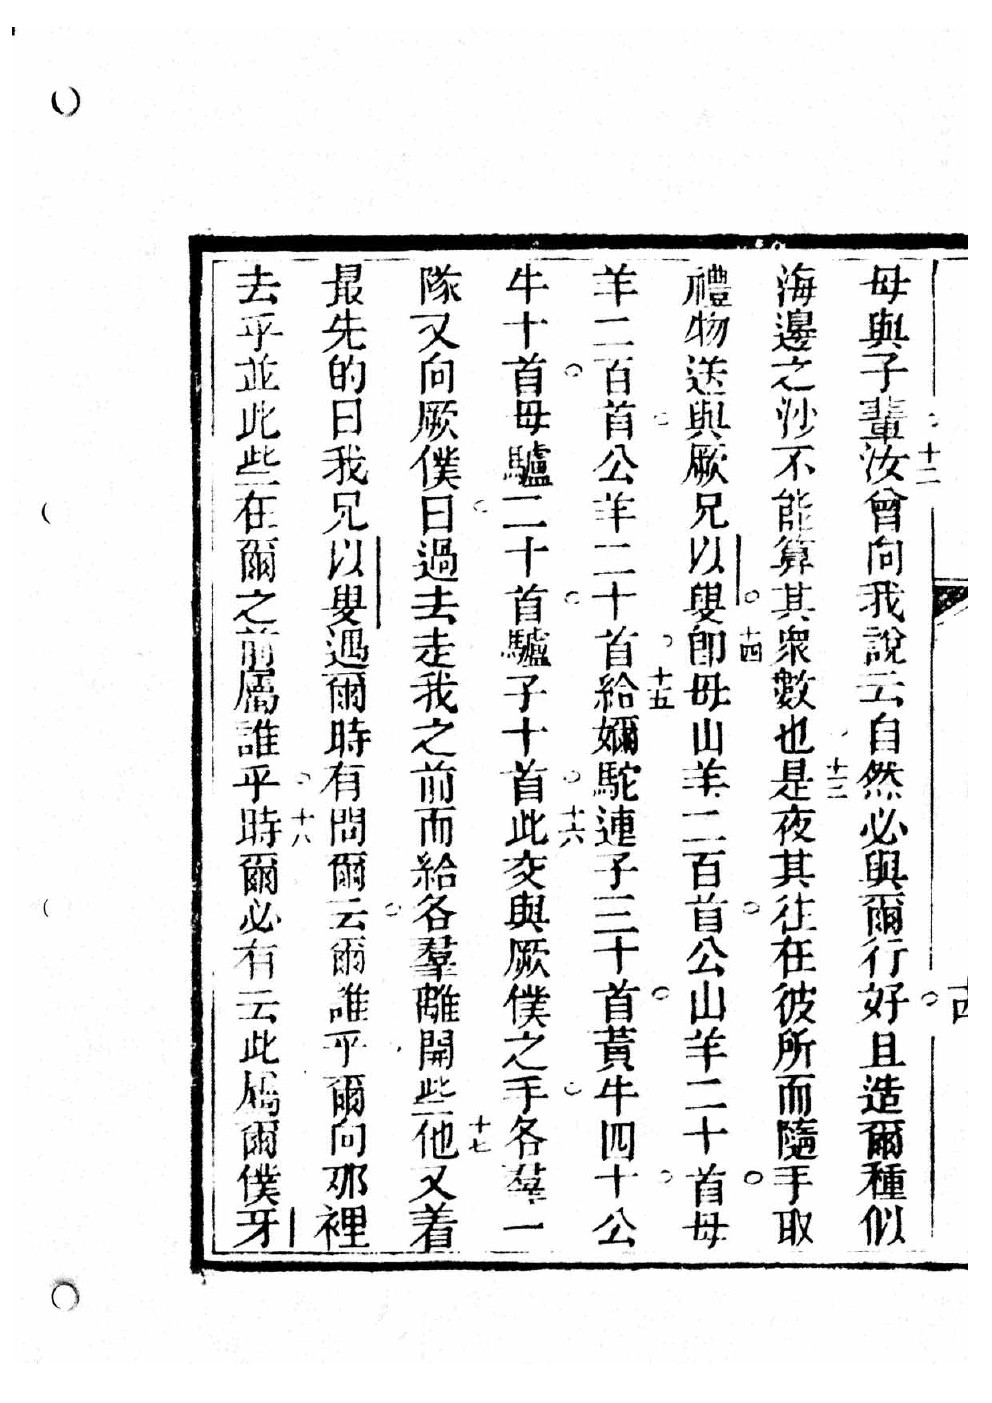 母與子輩十二汝曾向我說云自然必與爾行好且造爾種似
海邊之沙不能算其衆數也十三是夜其徃在彼所而隨手取
禮物送與厥兄以叟十四卽母山羊二百首公山羊二十首母
羊二百首公羊二十首十五給嬭駝連子三十首黃牛四十公
牛十首母驢二十首驢子十首十六此交與厥僕之手各羣一
隊又向厥僕曰過去走我之前而給各羣離開些十七他又着
最先的曰我兄以叟遇爾時有問爾云爾誰乎爾向那裡
去乎並此些在爾之前屬誰乎十八時爾必有云此屬爾僕牙